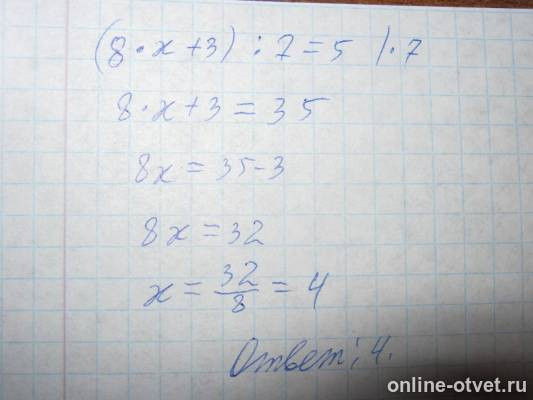 (8·x+3):7=5 |·7
8·x+3=35
8x=35-3
8x=32
x=32/8=4
Ответ: 4.
online-otvet.ru